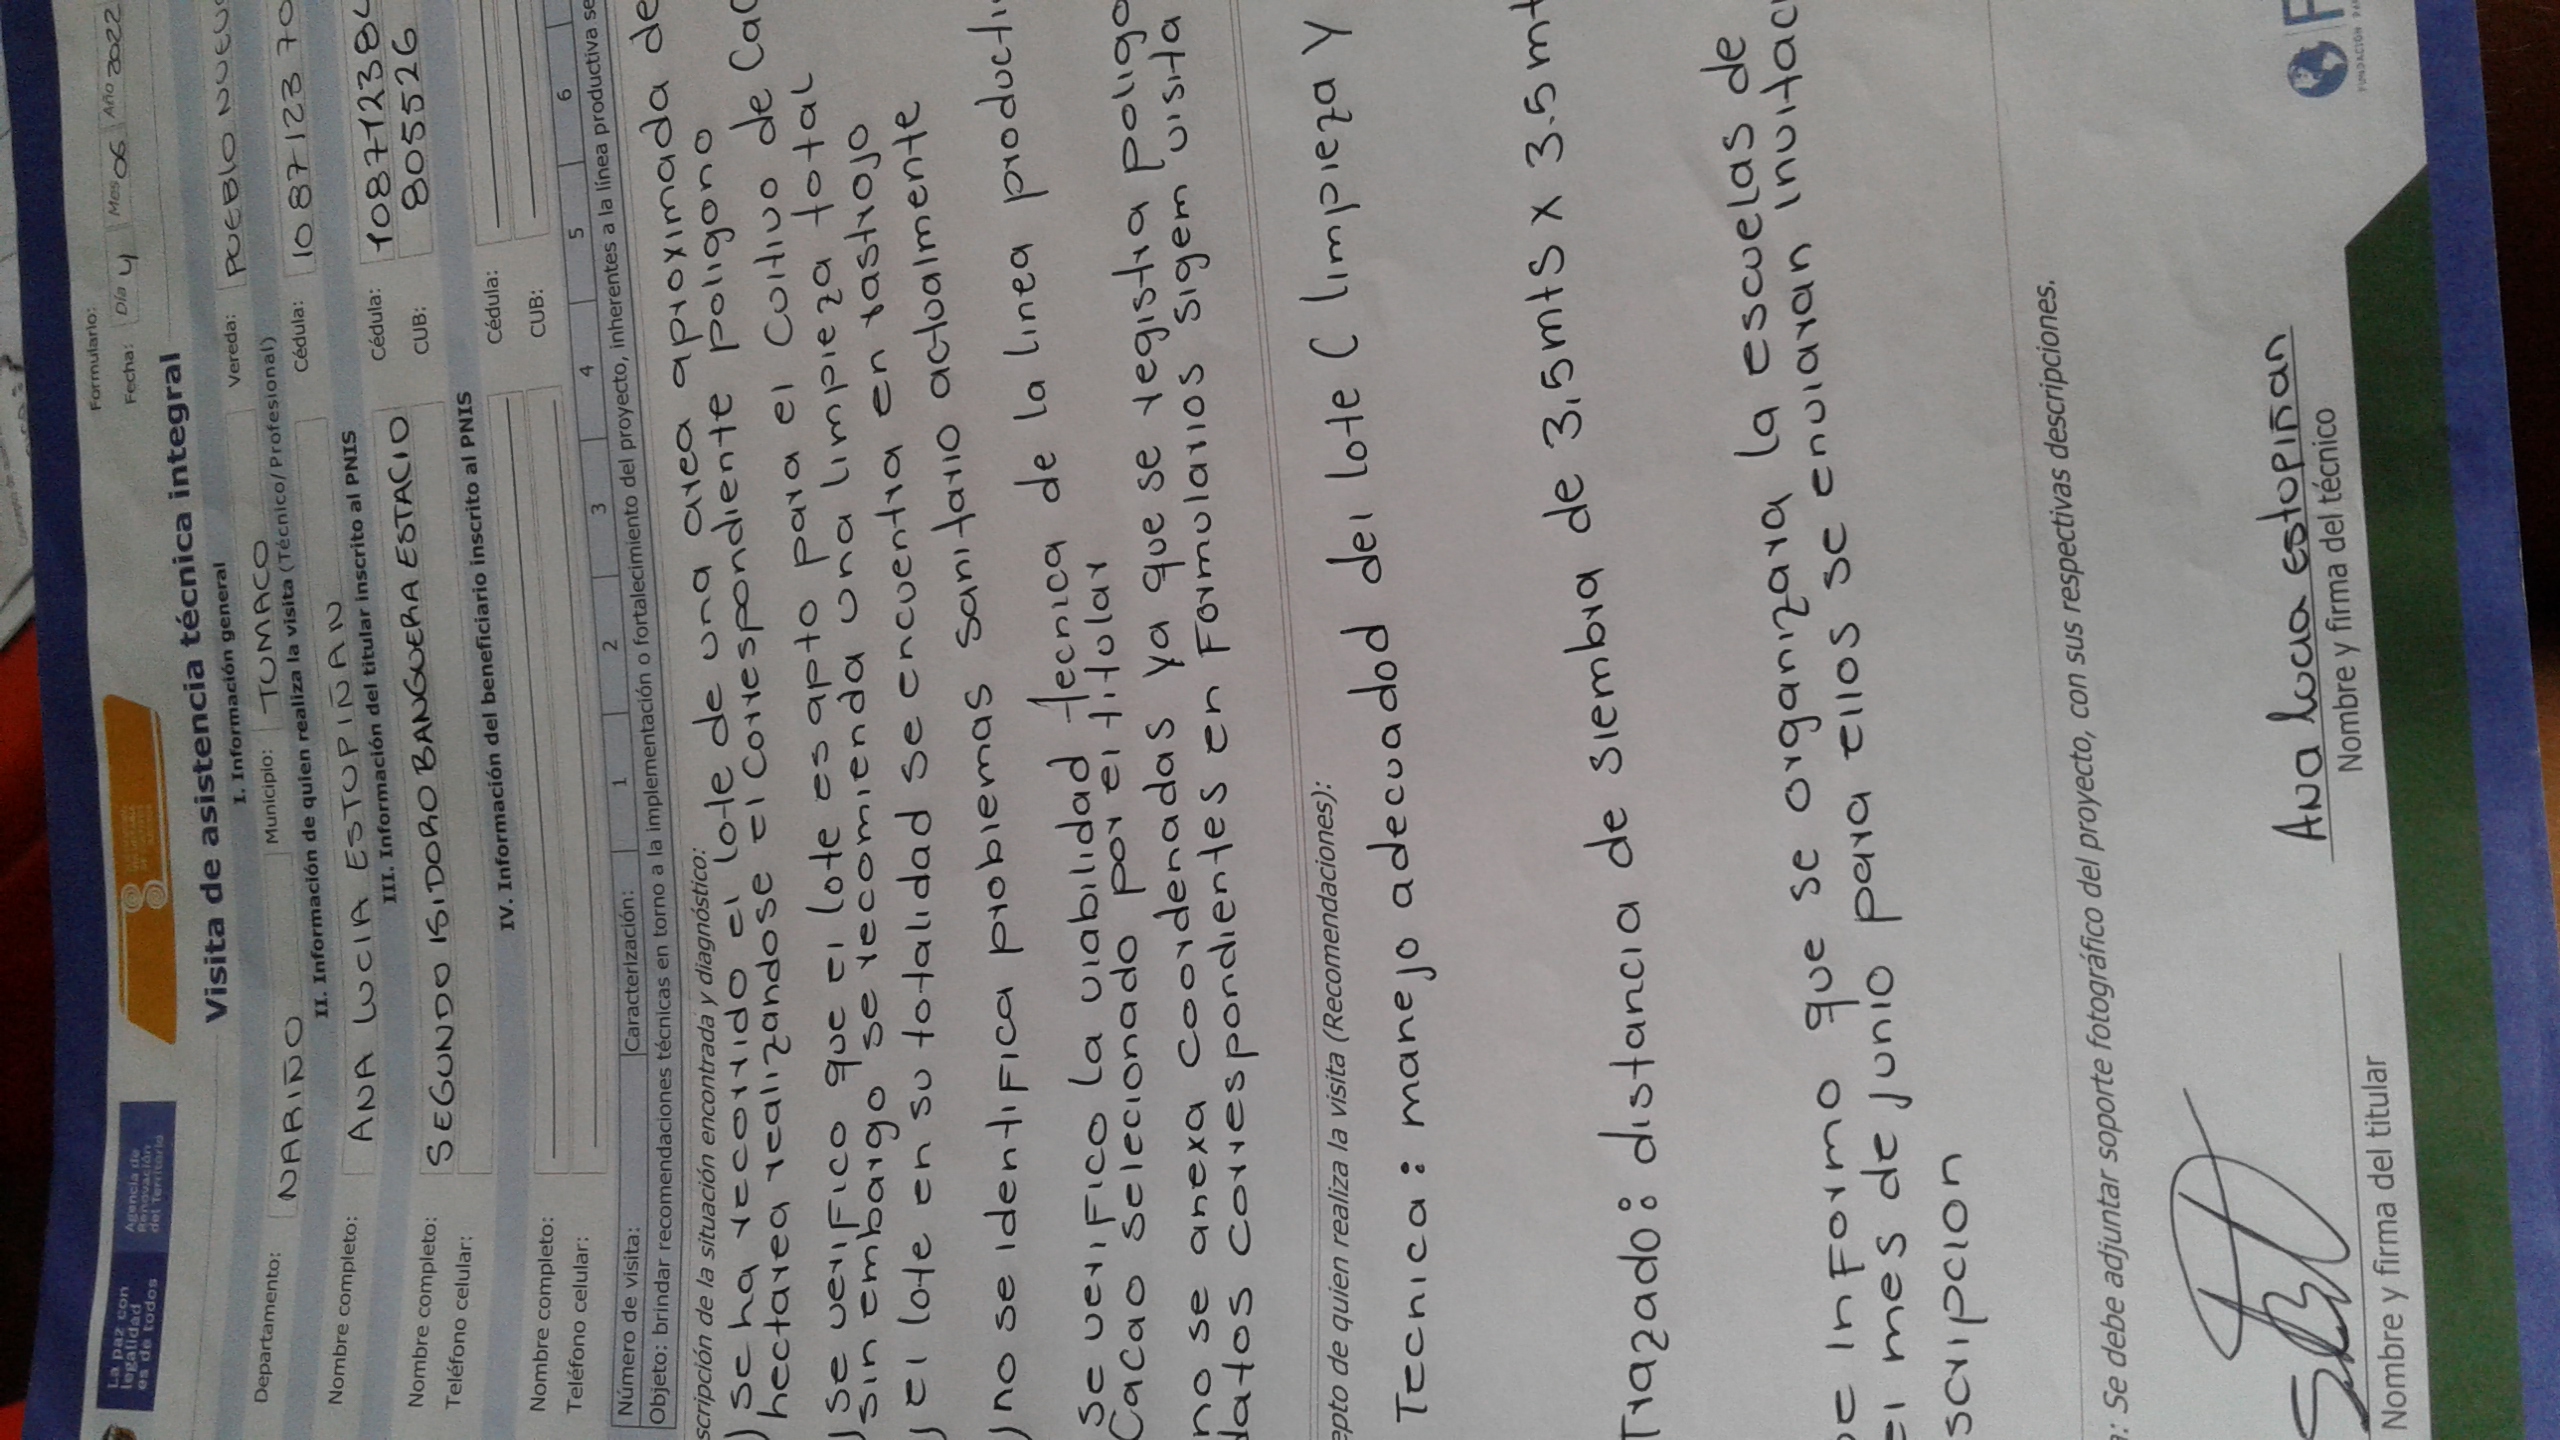 La paz con
legalidad
es de todos
Agencia de
Renovación
del Territorio
Formulario:
Fecha: Día 4 Mes 06 Año 2022
Visita de asistencia técnica integral
I. Información general
Departamento: NARIÑO Municipio: TUMACO Vereda: PUEBLO NUEVO
II. Información de quien realiza la visita (Técnico/Profesional)
Nombre completo: ANA LUCIA ESTUPIÑAN Cédula: 108712370
III. Información del titular inscrito al PNIS
Nombre completo: SEGUNDO ISIDORO BANGUERA ESTACIO Cédula: 10871238
Teléfono celular: CUB: 805526
IV. Información del beneficiario inscrito al PNIS
Nombre completo: Cédula:
Teléfono celular: CUB:
Número de visita: Caracterización: 1 2 3 4 5 6
Objeto: brindar recomendaciones técnicas en torno a la implementación o fortalecimiento del proyecto, inherentes a la línea productiva se
scripción de la situación encontrada y diagnóstico:
) se ha recorrido el lote de una area aproximada de
hectarea realizandose el correspondiente poligono
) se verifico que el lote es apto para el cultivo de Cac
sin embargo se recomienda una limpieza total
) el lote en su totalidad se encuentra en rastrojo
) no se identifica problemas sanitario actualmente
se verifico la viabilidad tecnica de la linea producti
Cacao selecionado por el titular
no se anexa coordenadas ya que se registra poligo
datos correspondientes en formularios sigem visita
epto de quien realiza la visita (Recomendaciones):
Tecnica: manejo adecuadod del lote ( limpieza y
Trazado: distancia de siembra de 3,5mts x 3.5mt
se informo que se organizara la escuelas de
el mes de junio para ellos se enviaran invitaci
scripcion
a: Se debe adjuntar soporte fotográfico del proyecto, con sus respectivas descripciones.
Ana lucia estupiñan
Nombre y firma del titular Nombre y firma del técnico
F
FUNDACIÓN PA